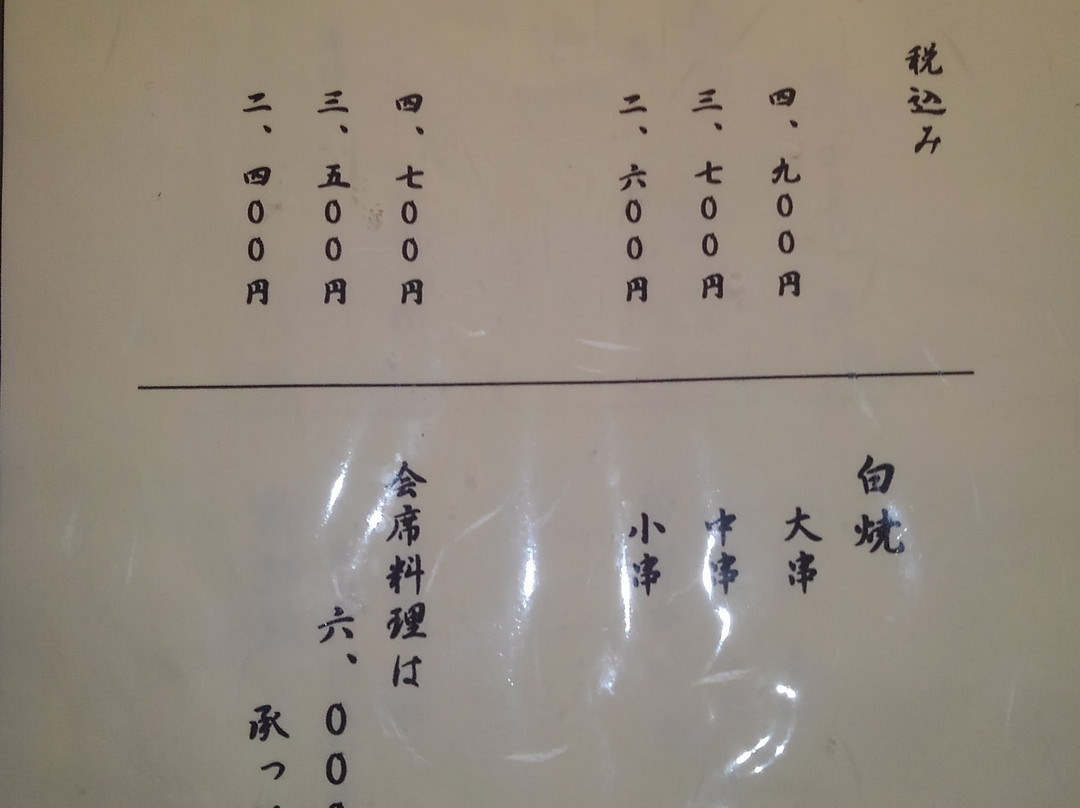 税込み
四、九〇〇円
三、七〇〇円
二、六〇〇円
四、七〇〇円
三、五〇〇円
二、四〇〇円
白焼
大串
中串
小串
会席料理は
六、〇〇〇
承つ